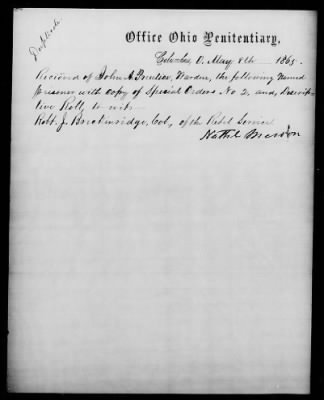 Duplicate
Office Ohio Penitentiary,
Columbus, O. May 8th 1865.
Received of John A Prentice, Warden, the following named
prisoner with copy of Special Orders No 2, and, Descrip-
tive Roll, to wit:
Robt. J. Breckinridge, Col., of the Rebel Service
Nathl Merion